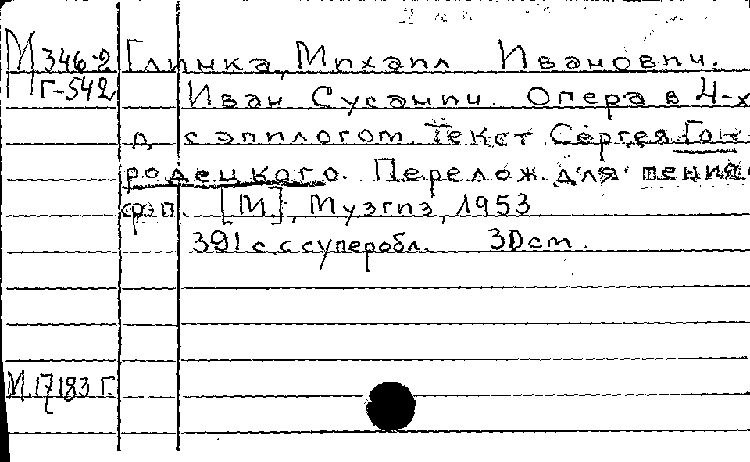 М 346-2 Глинка, Михаил Иванович.
Г-542 Иван Сусанин. Опера в 4-х
д. с эпилогом. Текст Сергея Го-
родецкого. Перелож. для пения
с рэп. [М], Музгиз, 1953
391 с. с суперобл. 30 см.
М. 17183 Г.